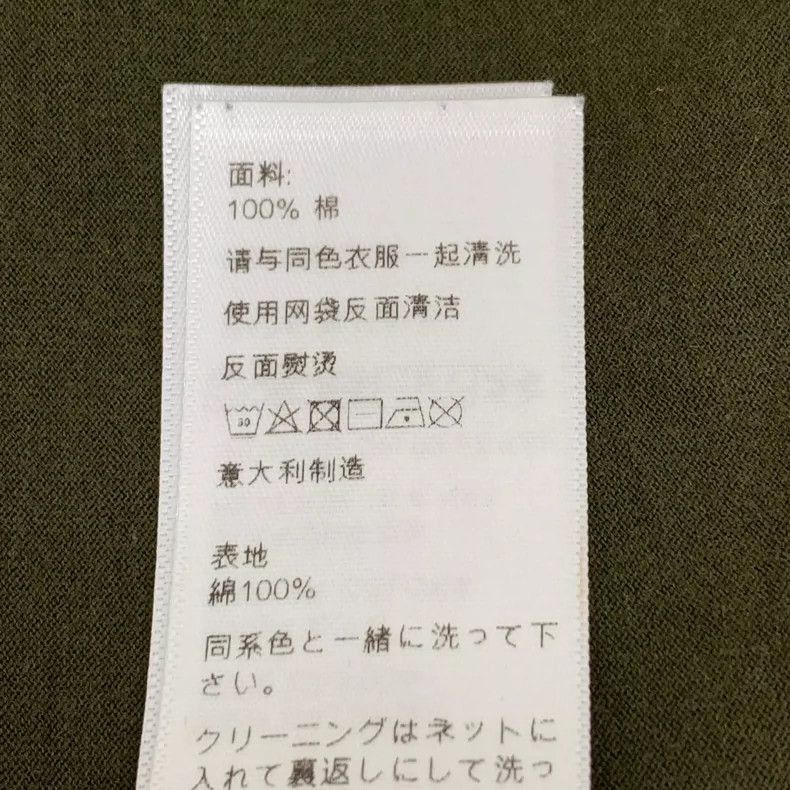 面料:
100% 棉
请与同色衣服一起清洗
使用网袋反面清洁
反面熨烫
30
意大利制造
表地
綿100%
同系色と一緒に洗って下
さい。
クリーニングはネットに
入れて裏返しにして洗っ